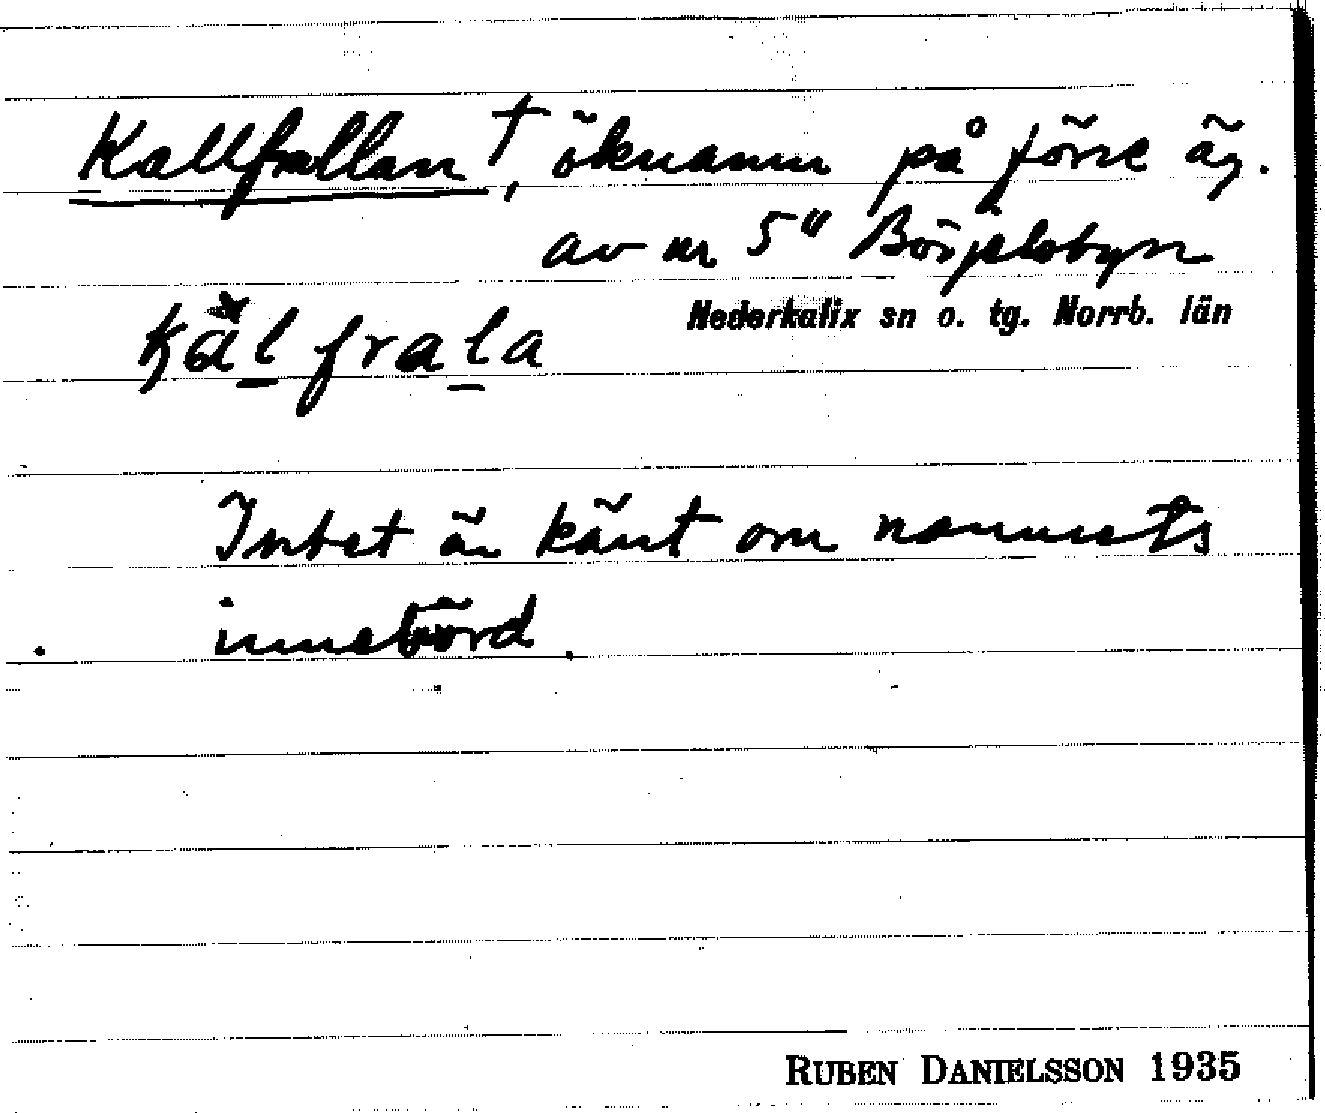 Kallfrallan †, öknamn på förre äg.
av nr 5" Börjelsbyn
Nederkalix sn o. tg. Norrb. län
Kälfrala
Intet är känt om namnets
innebörd.
RUBEN DANIELSSON 1935